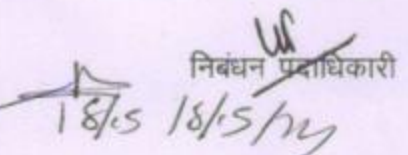 निबंधन पदाधिकारी
18/5 18/5/24